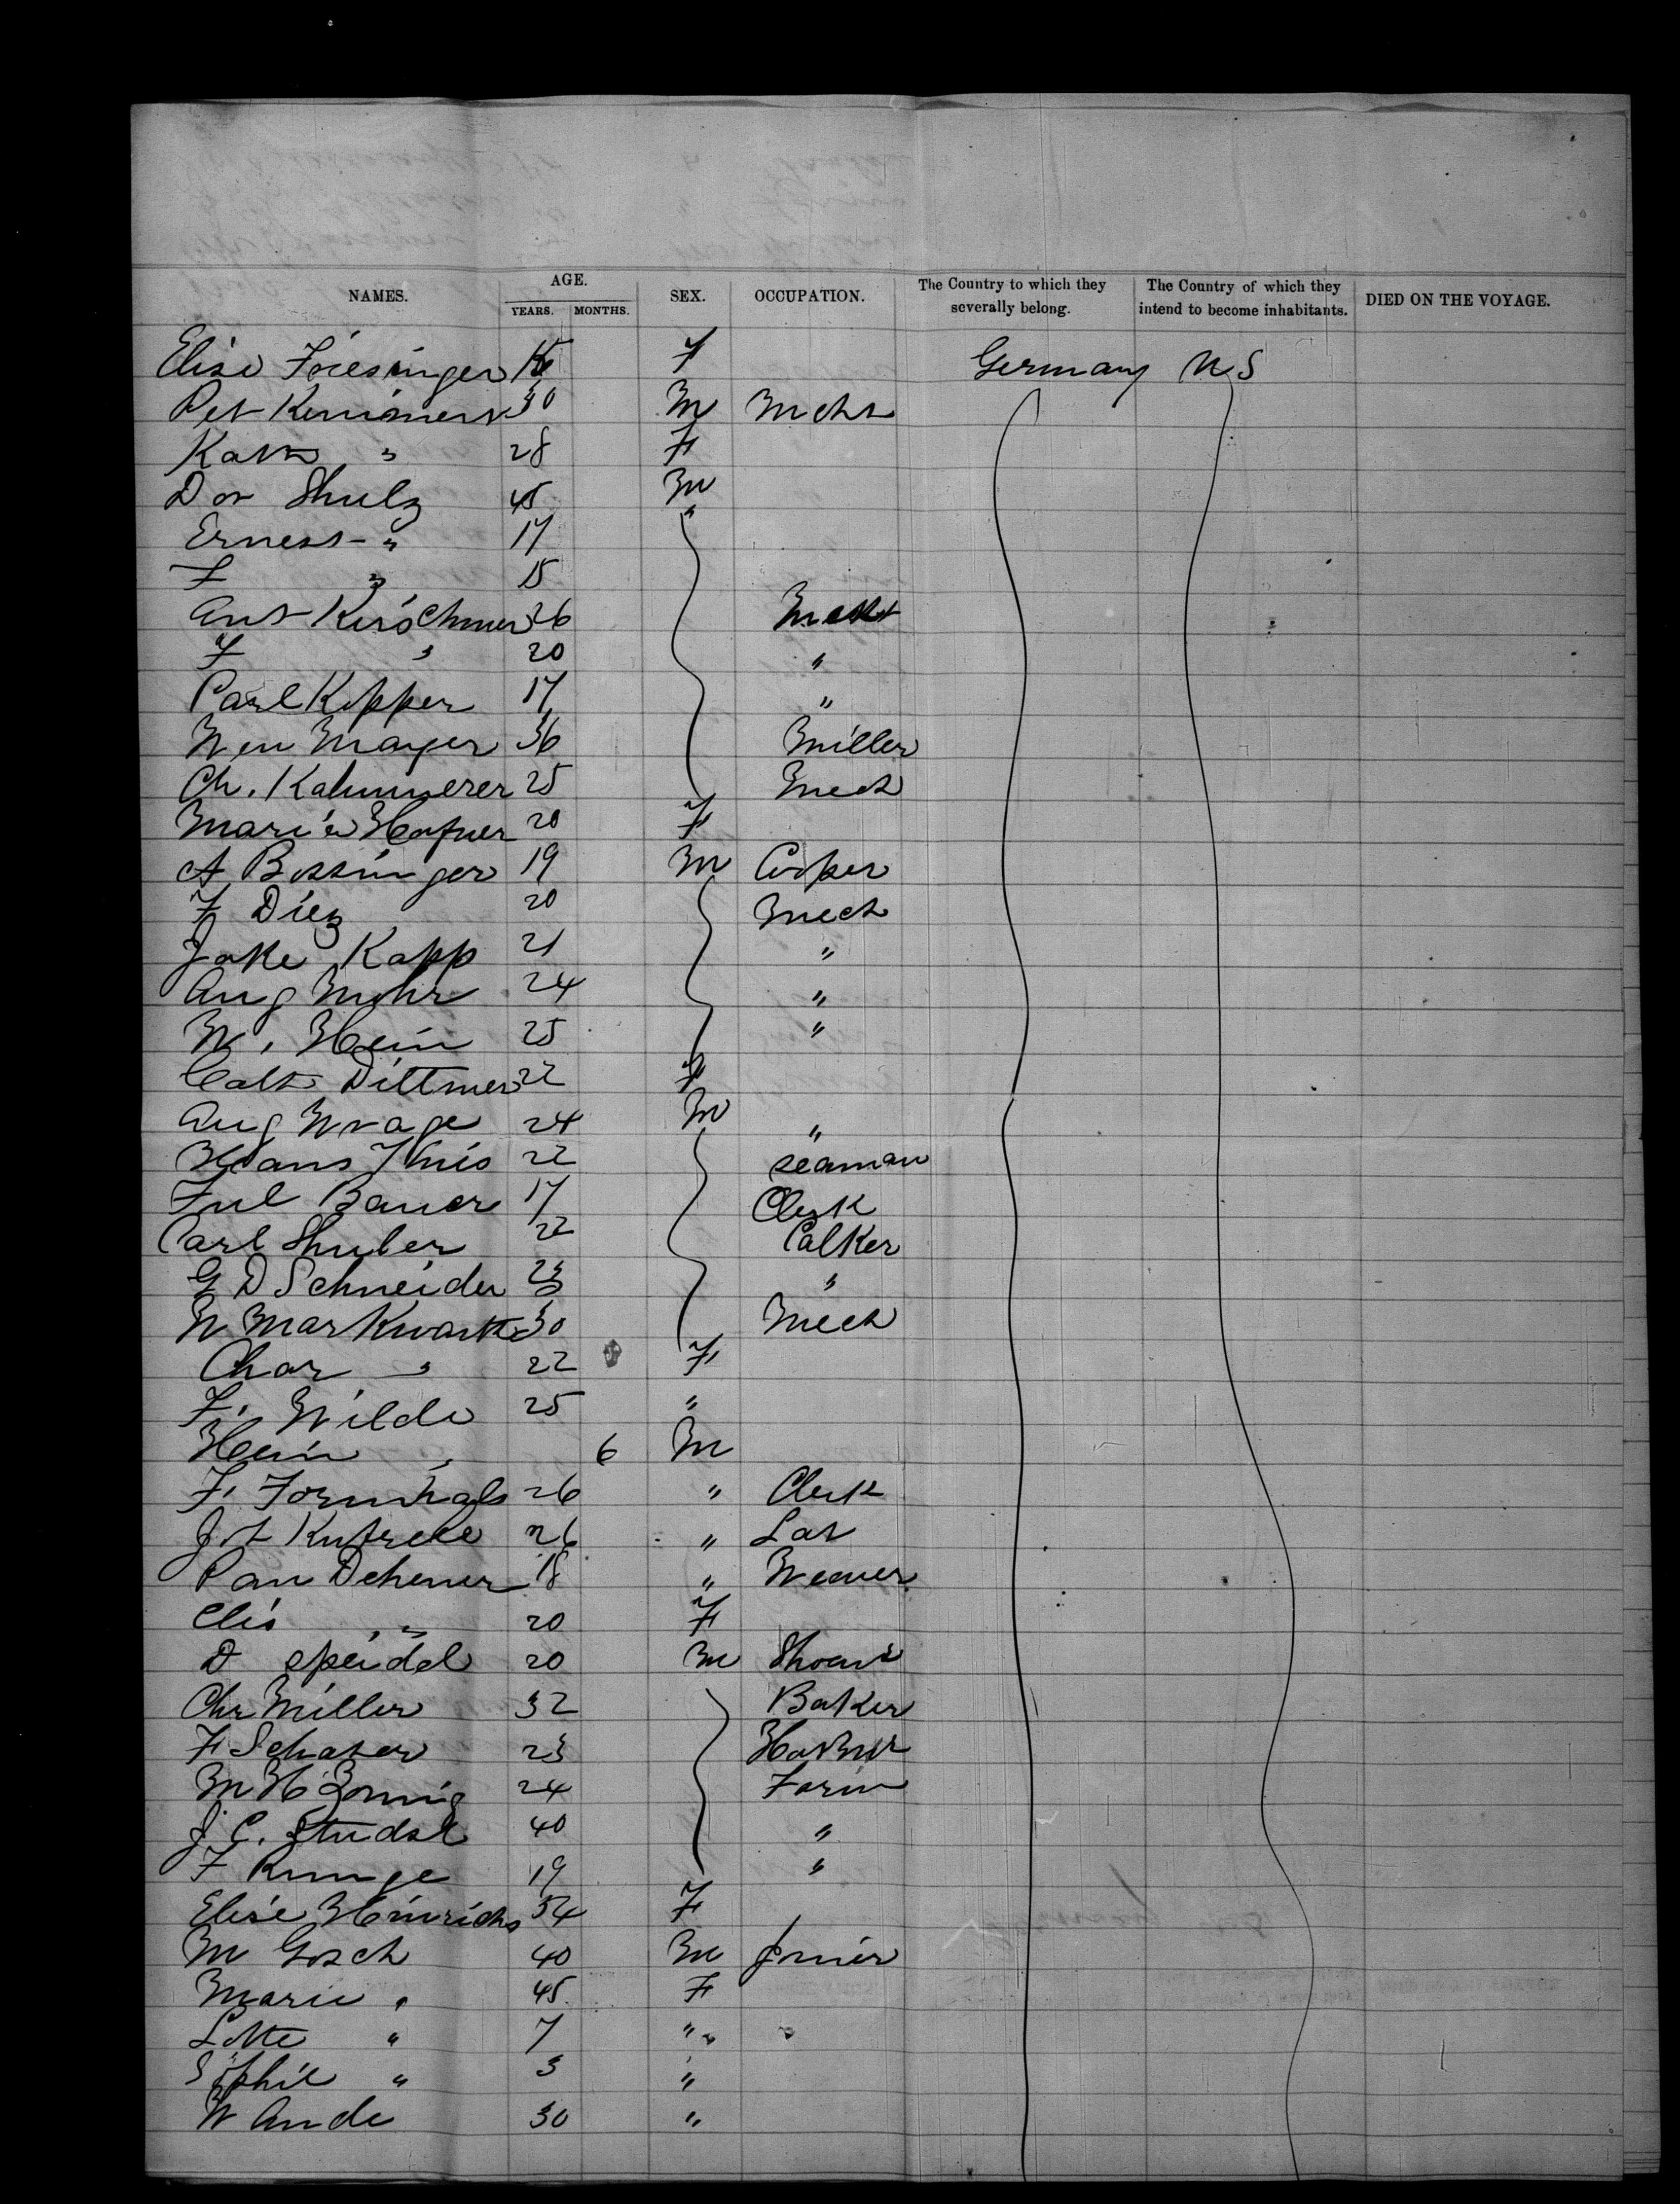 NAMES. AGE. YEARS. MONTHS. SEX. OCCUPATION. The Country to which they severally belong. The Country of which they intend to become inhabitants. DIED ON THE VOYAGE.
Elise Friesinger F Germany U S
Pet Kemmers 30 M Mcht
Kath " 28 F
Dor Shulz 45 M
Ernest " 17 "
F " 15
Ant Kirschmer 26 Mcht
F " 20 "
Carl Kopper 17 "
Wm Mayer 36 Miller
Ch. Kahmmerer 25 Mech
Marie Hafner 20 F
A Bossinger 19 M Cooper
F Diez 20 Mech
Jake Kapp 21 "
Aug Mohr 24 "
W. Hein 25 "
Cath Dittmer 22 F
Aug Wrage 24 M "
Hans Thies 22 Seaman
Jul Bauer 17 Clerk
Carl Shuler 22 Calker
G D Schneider 23 "
W Markwart 30 Mech
Char " 22 F
F. Wilde 25 "
Hein " 6 M
F. Fornhals 26 " Clerk
26 "
18 " Weaver
Elis " 20 F
D Speidel 20 M
Chr Miller 32 Baker
F Schafer 23
24 Farm
J. C. 40 "
F Runge 19 "
Elise Hinrichs 34 F
M Gosch 40 M Joiner
Marie " 45 F
Lotte " 7 " "
Sophie " 3 "
W Ande 30 "